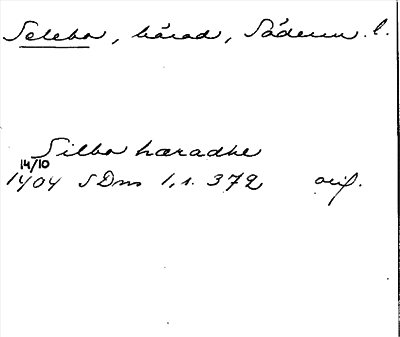 Selebo, härad, Söderm. l.
Silbo hæradhe
14/10
1404 SDns 1, s. 372 orig.